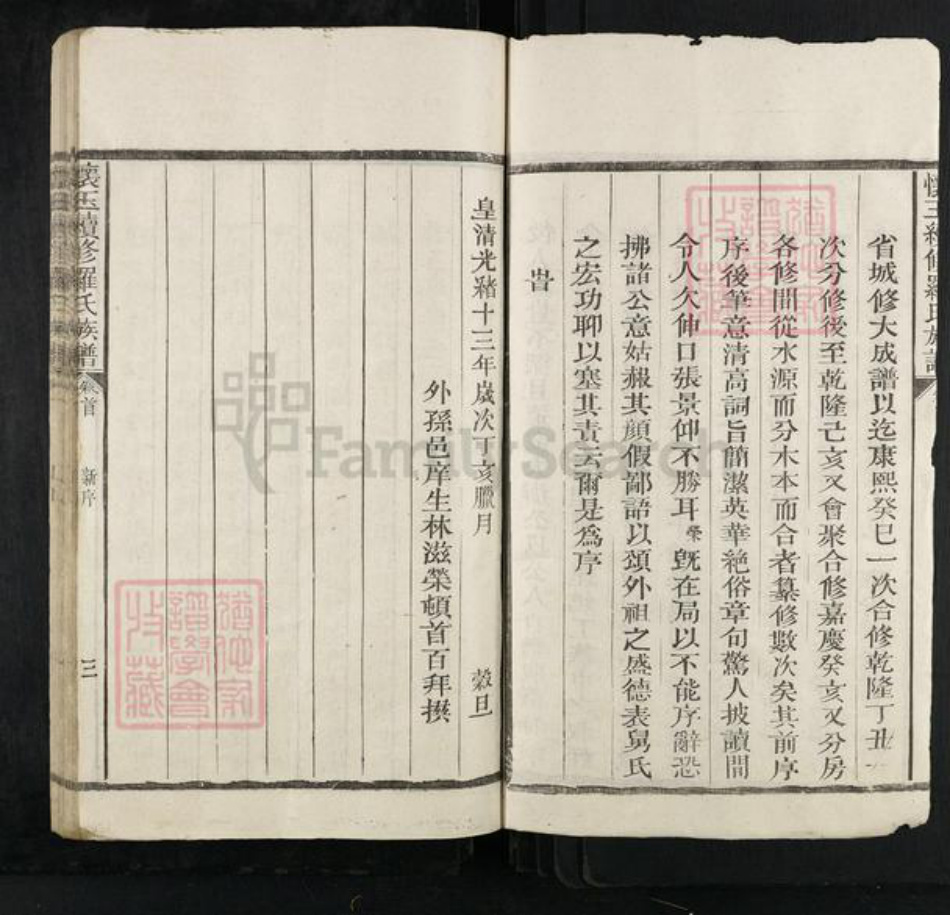 省城修大成譜以迄康熙癸巳一次合修乾隆丁丑一
次分修後至乾隆己亥又會聚合修嘉慶癸亥又分房
各修間從水源而分木本而合者纂修數次矣其前序
序後筆意清高詞旨簡潔英華絕俗章句驚人披讀間
令人欠伸口張景仰不勝耳榮既在局以不能序辭恐
拂諸公意姑赧其顏假鄙語以頌外祖之盛德表舅氏
之宏功聊以塞其責云爾是爲序
旹
皇清光緒十三年歲次丁亥臘月 穀旦
外孫邑庠生林滋榮頓首百拜撰
懷玉續修羅氏族譜 卷首 新序 三
FamilySearch